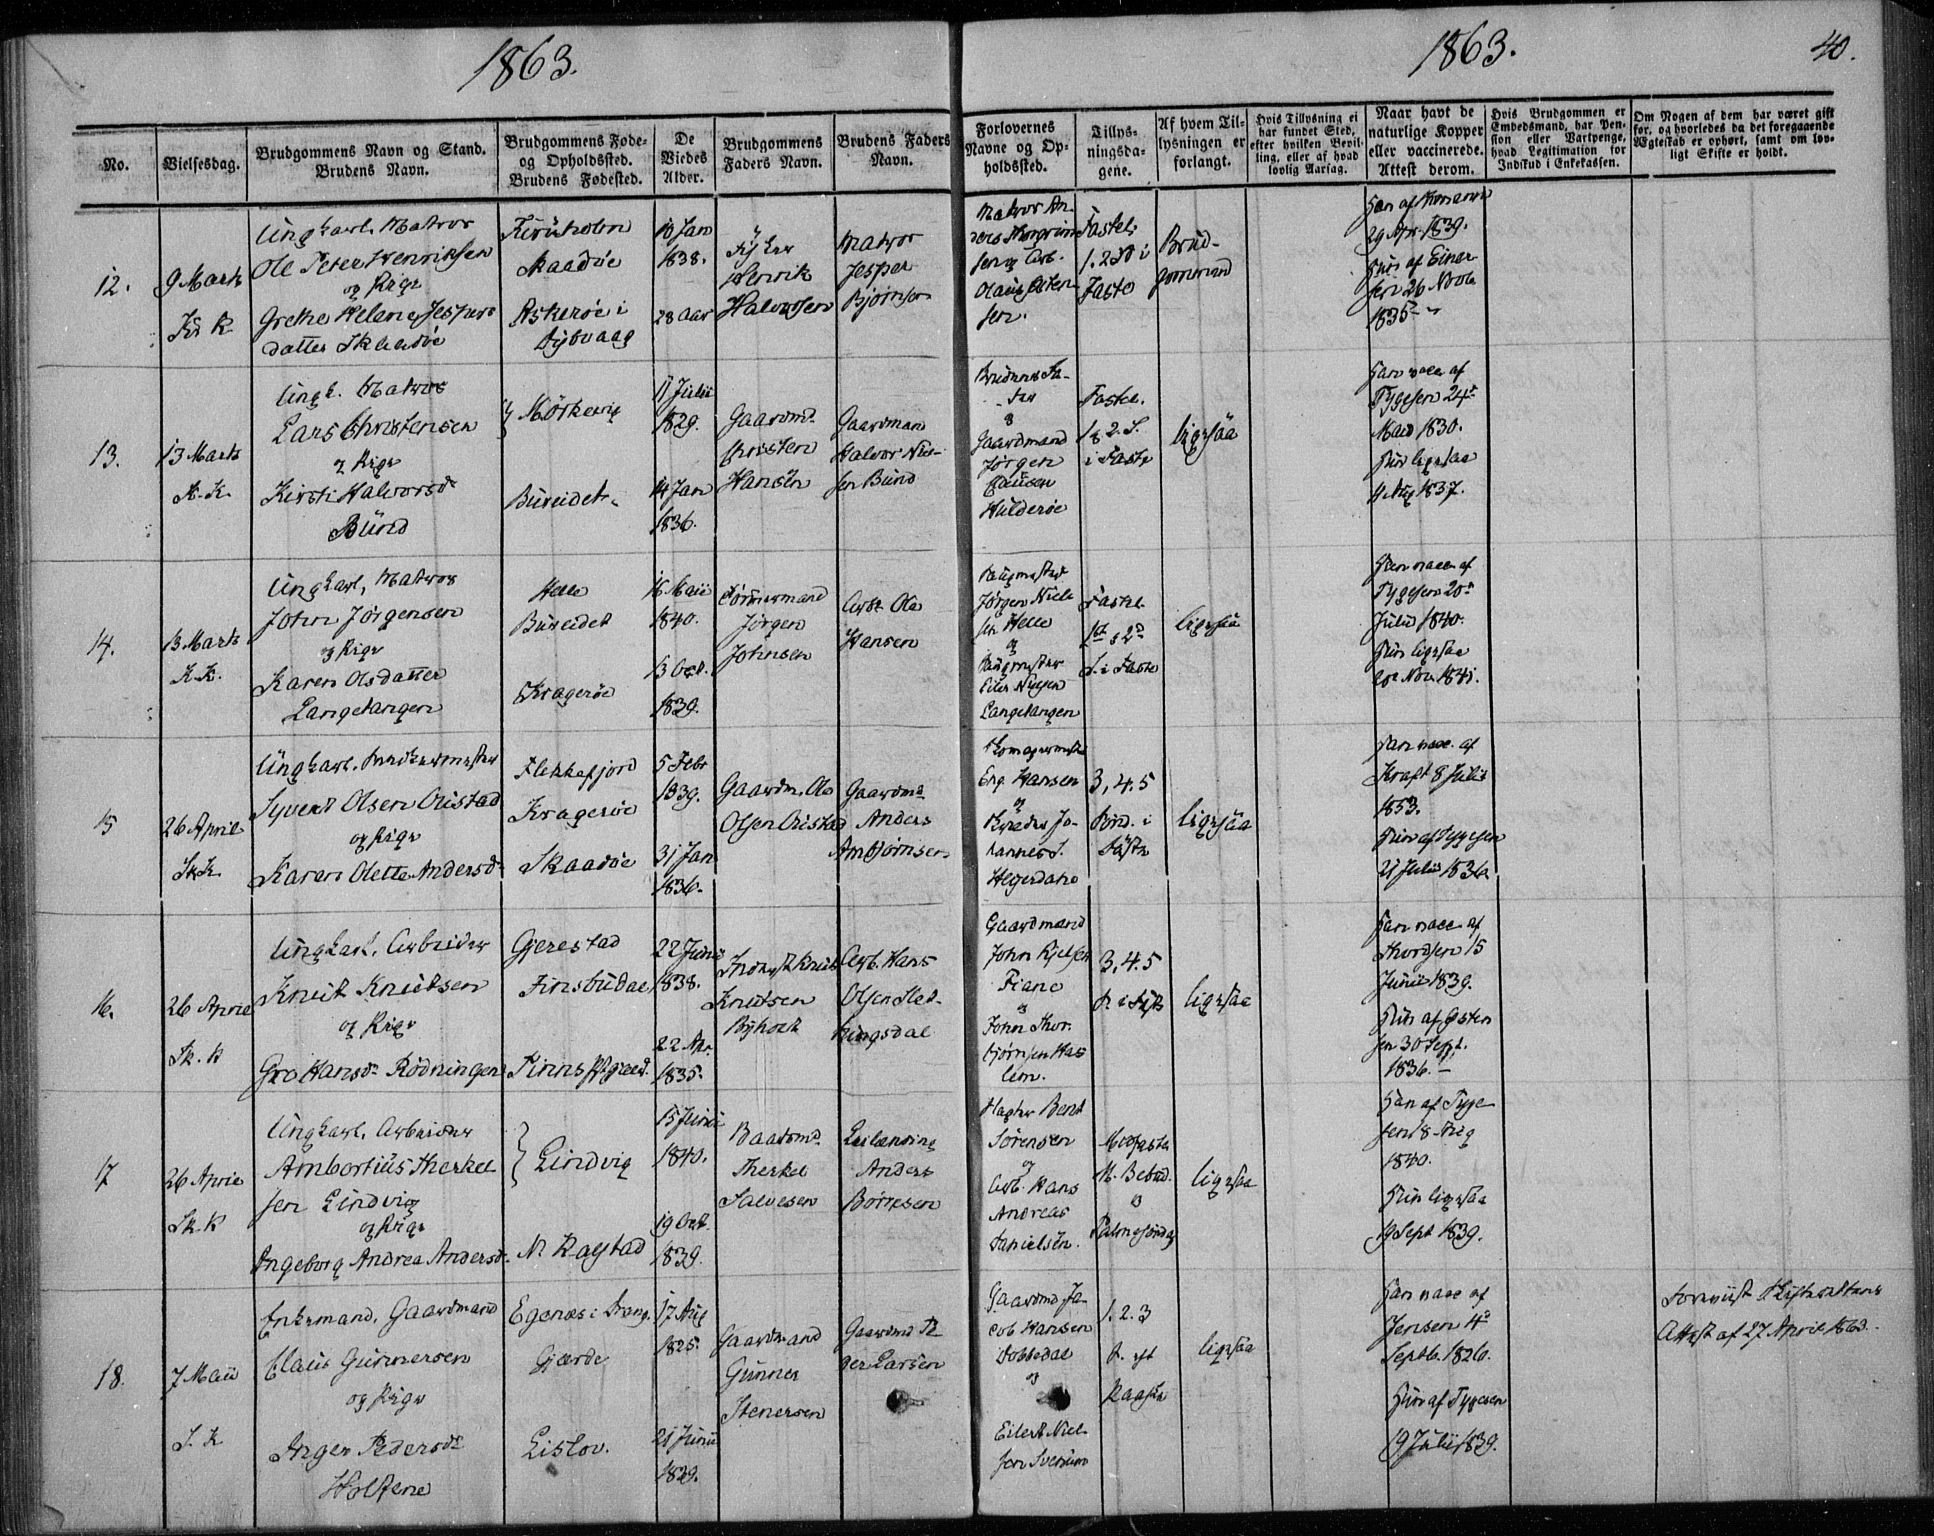 1863.
1863.
40.
No.
Vielsesdag.
Brudgommens Navn og Stand.
Brudens Navn.
Brudgommens Føde-
og Opholdssted.
Brudens Fødested.
De
Viedes
Alder.
Brudgommens
Faders Navn.
Brudens Faders
Navn.
Forlovernes
Navne og Op-
holdssted.
Tillys-
ningsda-
gene.
Af hvem Til-
lysningen er
forlangt.
Hvis Tillysning ei
har fundet Sted,
efter hvilken Bevil-
ling, eller af hvad
lovlig Aarsag.
Naar havt de
naturlige Kopper
eller vaccinerede.
Attest derom.
Hvis Brudgommen er
Embedsmand, har Pen-
sion eller Vartpenge,
hvad Legitimation for
Indskud i Enkekassen.
Om Nogen af dem har været gift
før, og hvorledes da det foregaaende
Ægteskab er ophørt, samt om lov-
ligt Skifte er holdt.
12.
9 Marts
Kr K.
Ungkarl, Matros
Ole Peter Henriksen
og Pige
Grethe Helene Jespers
datter Skaadøe
Skaadøe
Askerøe i
Dybvaag
18 Jan
1838.
28 Aar
Henrik
Halvorsen
Matros
Jesper
Bjørnsen
Matros An-
sen.
Fastel.
1. 2 S i
Faste
Brud-
gommen
29 Apr. 1839.
Hun af Einer
sen 26 Novb
1835
13.
13 Marts
K. K.
Ungk. Matros
Lars Christensen
og Pige
Kirsti Halvorsd.
Bund
Mørkevig
Bureidet.
17 Julii
1829.
14 Jan
1836.
Gaardmd.
Christen
Hansen
Gaardman
Halvor Niel-
sen Bund
Brudens Fa-
der
og
Gaardmand
Jørgen
Clausen
Hulderøe
Fastel.
1 & 2. S.
i Faste
ligesaa
Han vacc af
Tygesen 24de
Mai 1830.
Hun ligesaa
4 Aug 1837.
14.
13 Marts
K. K.
Ungkarl, Matros
John Jørgensen
og Pige
Karen Olsdatter
Langetangen
Helle
Bureidet
Kragerøe
16 Maii
1840.
13 Oct.
1839.
Tømmermand
Jørgen
Johnsen
Arbr Ole
Hansen
Jørgen Niels
sen Helle
og
Langetangen
Fastel.
1st & 2d
S. i Faste
ligesaa
Han vacc af
Tygesen 20de
Julii 1840.
Hun ligesaa
Nov. 1841.
15
26 April
Sk. K.
Ungkarl, Snedkermester
Syvert Olsen Oustad
og Pige
Karen Olette Andersd.
Flekkefjord
Kragerøe
Skaadøe
5 Febr
1839.
31 Jan
1836.
Gaardm. Ole
Olsen Oustad
Gaardmd
Anders
Ambjørnsen
Skomagermester
Eng. Hansen
og
Jo-
hannes S.
Hegerdahl
3, 4. 5
Sønd. i
Faste
ligesaa
Han vacc. af
Kraft 8 Julii
1853.
Hun af Tygesen
21 Julii 1836.
16.
26 April
Sk. K
Ungkarl, Arbeider
Knut Knutsen
og Pige
Gro Hansd. Rødningen
Gjerestad
Finsbudal
Tinns Pgjæld.
22 Junii
1838.
22 Apr.
1835.
Knutsen
Byholt
Arb. Hans
Olsen Slet-
tingsdal
Gaardmand
John Kjelsen
Fiane
og
John Thor-
bjørnsen Has
lum.
3, 4. 5
S. i Faste
ligesaa
Han vacc af
Thordsen 15
Junii 1839.
Hun af Østen
sen 30 Sept.
1836.
17
26 April
Sk. K
Ungkarl, Arbeider
Ambortius Therkel
sen Lindvig
og Pige
Ingeborg Andrea Andersd.
Lindvig
N. Ragstad
15 Junii
1840.
19 Oct.
1839.
Baadsmd.
Therkel
Salvesen
Anders
Børresen
Bent
Sørensen
og
Arb. Hans
Andreas
Danielsen.
Midfaste
M. Bebud.
og
Palmesøndag
ligesaa
Han af Tyge
sen 8 Aug
1840.
Hun ligesaa
19 Sept 1839.
18.
7 Maii
S. K
Enkemand, Gaardmand
Claus Gunnersen
og Pige
Inger Pedersdt
Holtene
Egenæs i Drang.
Gjærde
Lislov.
17 Aug
1825.
21 Junii
1829.
Gaardmand
Gunner
Stenersen
Gaardmd Pe
der Larsen
Gaardmd Ja-
cob Hansen
Dobbedal
og
Eilert Niel-
sen
1. 2. 3
S. eft
Paaske
ligesaa
Han vacc af
Jensen 4de
Septb. 1826.
Hun af Tygesen
19 Julii 1839.
Forevist Skifterettens
Attest af 27 April 1863.